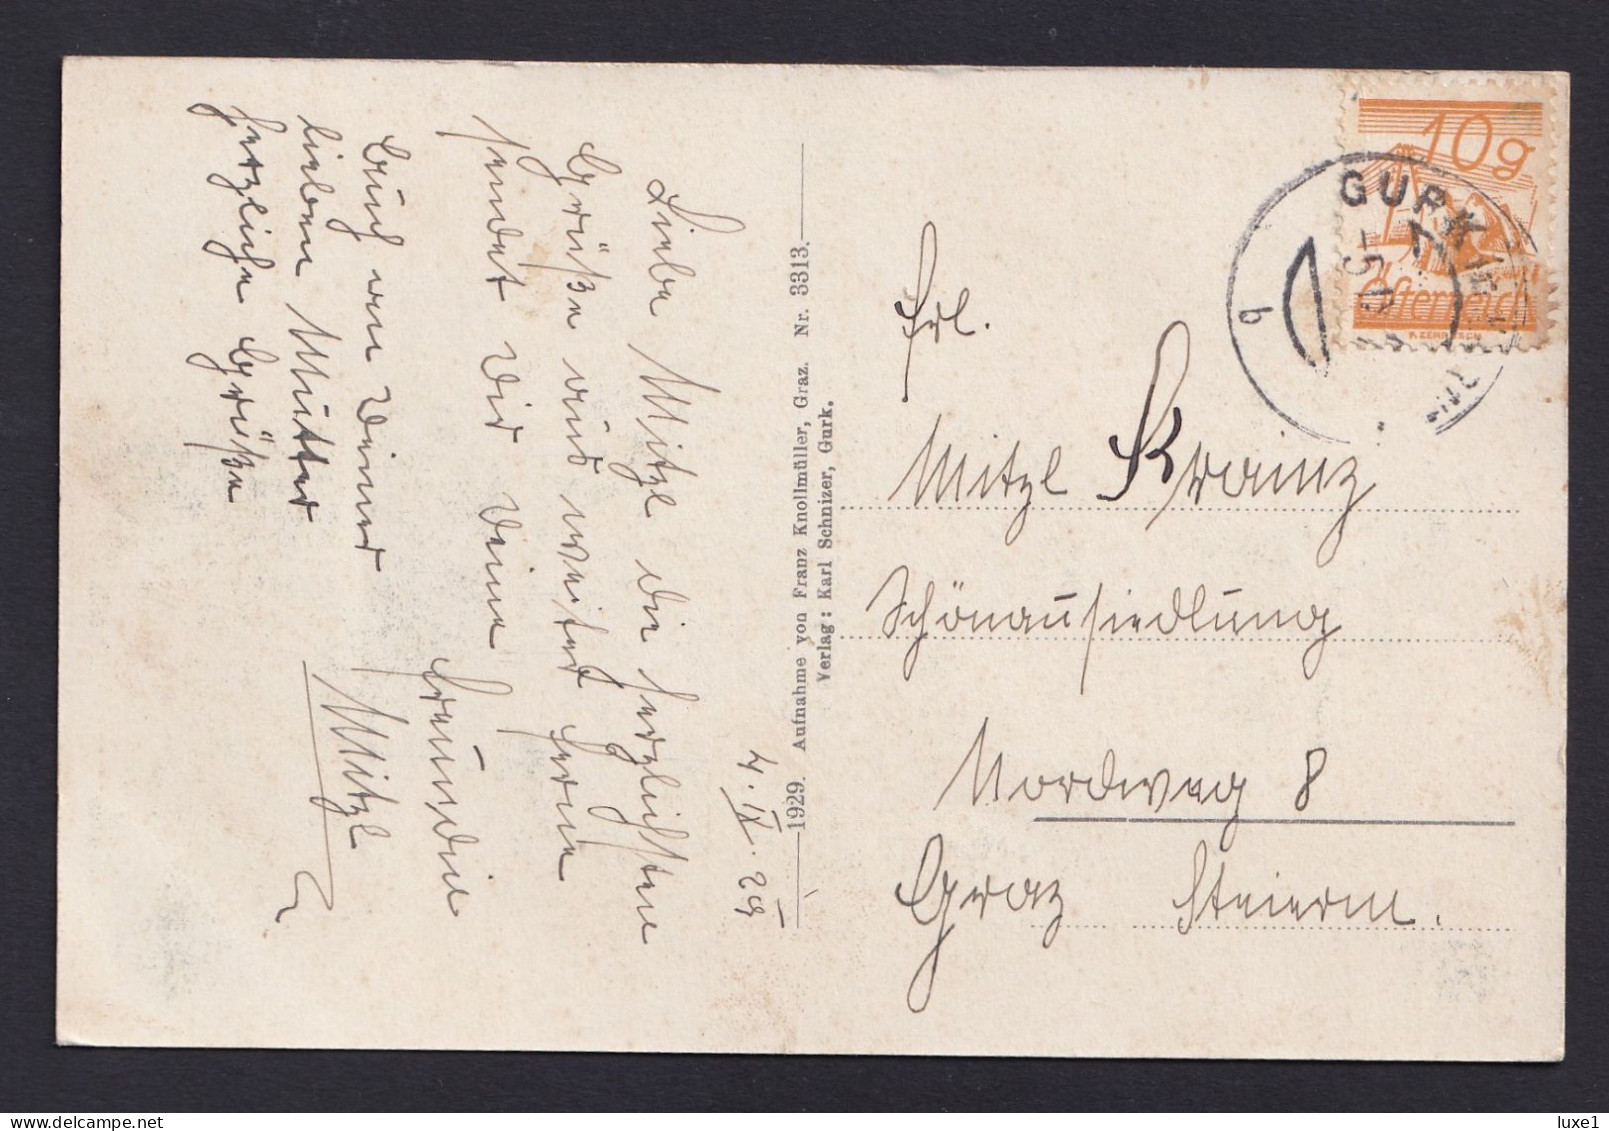 4. IX. 29
Liebe Mitzl die herzlichsten
Grüße aus weiter Ferne
sendet Dir Deine
Freundin
Mitzl
Auch an Deiner
lieben Mutter
herzliche Grüße
1929. Aufnahme von Franz Knollmüller, Graz. Nr. 3313.
Verlag: Karl Schnizer, Gurk.
10g
Österreich
GURK
b
Frl.
Mitzl Krainz
Schönausiedlung
Nordweg 8
Graz Steierm.
luxe1